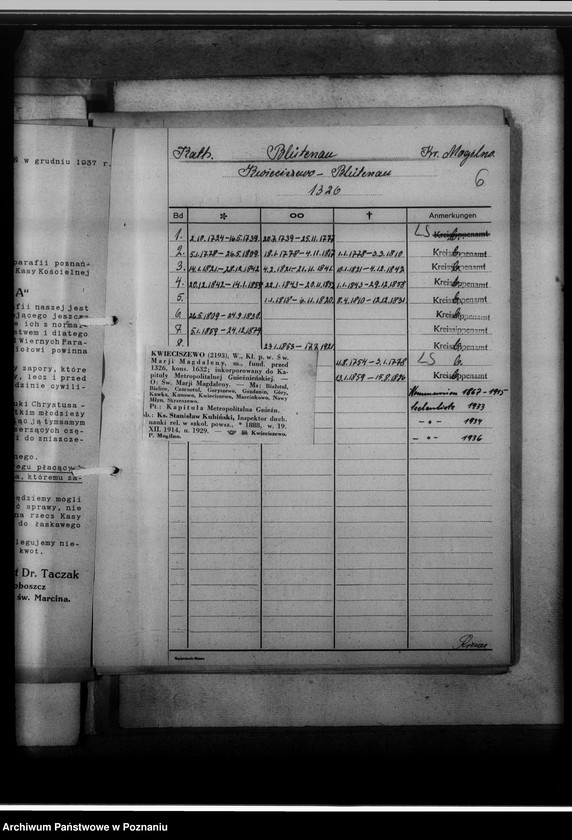 w grudniu 1937 r.
parafii poznań-
Kasy Kościelnej
A"
fii naszej jest
ającego jeszcze
e ich z normal-
stwem i dlatego
i Wiernych Para-
iołowi powinna
y zapory, które
y, lecz i przed
dzinie cywili-
uki Chrystusa -
tkim młodzieży
ąc ją tymsamym
zerzących czę-
i do zniszcze-
nego.
egu płacących
a, któremu za-
ędziemy mogli
ć sprawy, nie
na rzecz Kasy
do łaskawego
legujemy nie-
kwot.
t Dr. Taczak
oboszcz
św. Marcina.
Kath. Blütenau Kr. Mogilno.
Kwieciszewo - Blütenau
1326
6
Bd * ∞ † Anmerkungen
1. 2.10.1734-16.5.1739. 20.7.1739-25.11.1777 LS Kreissippenamt
2. 5.1.1778-26.5.1809. 18.1.1778-4.11.1817 1.1.1778-3.3.1810 Kreissippenamt
3. 14.1.1821-28.12.1842 4.2.1821-21.11.1841 10.1.1821-4.12.1842 Kreissippenamt
4. 20.12.1842-14.1.1859 22.1.1843-20.11.1852 1.1.1843-29.12.1858 Kreissippenamt
5. 1.1.1818-6.11.1820 8.4.1810-12.12.1831 Kreissippenamt
6. 26.5.1809-24.9.1830. Kreissippenamt
7. 5.1.1859-24.12.1879 Kreissippenamt
8. 23.1.1853-17.7.1921. Kreissippenamt
11.8.1754-3.1.1778 LS
13.1.1859-15.8.1890 Kreissippenamt
Kommunion 1867-1915
Seelenliste 1933
- " - 1934
- " - 1936
KWIECISZEWO (2193), W., Kł. p. w. Św.
Marji Magdaleny, m., fund. przed
1326, kons. 1632; inkorporowany do Ka-
pituły Metropolitalnej Gnieźnieńskiej. —
O: Św. Marji Magdaleny. — Ma: Białotul,
Bielice, Czarnotul, Goryszewo, Gozdanin, Góry,
Kawka, Kunowo, Kwieciszewo, Marcinkowo, Nowy
Młyn, Skrzeszewo.
Pt.: Kapituła Metropolitalna Gnieźn.
Ks. Stanisław Kubiński, Inspektor duch.
nauki rel. w szkoł. powsz., * 1888, w. 19.
XII. 1914, u. 1929. — Kwieciszewo.
P. Mogilno.
Archiwum Państwowe w Poznaniu